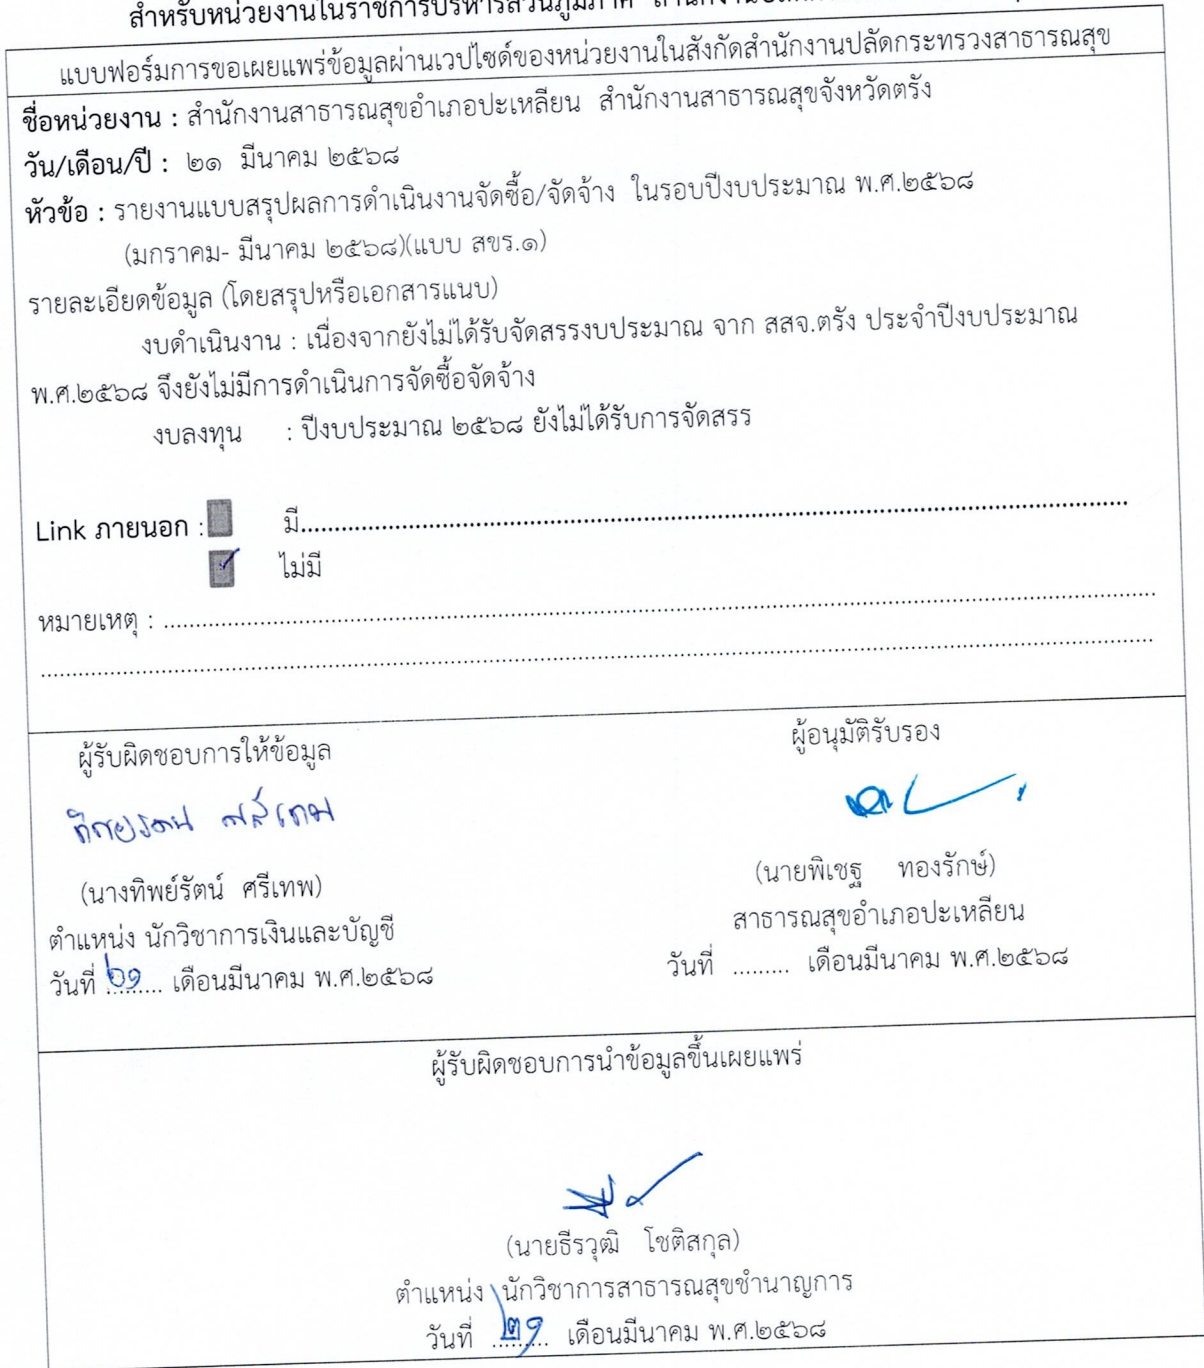 สำหรับหน่วยงานในราชการบริหารส่วนภูมิภาค
แบบฟอร์มการขอเผยแพร่ข้อมูลผ่านเวปไซด์ของหน่วยงานในสังกัดสำนักงานปลัดกระทรวงสาธารณสุข
ชื่อหน่วยงาน : สำนักงานสาธารณสุขอำเภอปะเหลียน สำนักงานสาธารณสุขจังหวัดตรัง
วัน/เดือน/ปี : ๒๑ มีนาคม ๒๕๖๘
หัวข้อ : รายงานแบบสรุปผลการดำเนินงานจัดซื้อ/จัดจ้าง ในรอบปีงบประมาณ พ.ศ.๒๕๖๘
(มกราคม- มีนาคม ๒๕๖๘)(แบบ สขร.๑)
รายละเอียดข้อมูล (โดยสรุปหรือเอกสารแนบ)
งบดำเนินงาน : เนื่องจากยังไม่ได้รับจัดสรรงบประมาณ จาก สสจ.ตรัง ประจำปีงบประมาณ
พ.ศ.๒๕๖๘ จึงยังไม่มีการดำเนินการจัดซื้อจัดจ้าง
งบลงทุน : ปีงบประมาณ ๒๕๖๘ ยังไม่ได้รับการจัดสรร
Link ภายนอก : มี..........
✓ ไม่มี
หมายเหตุ : ..........
ผู้รับผิดชอบการให้ข้อมูล ผู้อนุมัติรับรอง
(นางทิพย์รัตน์ ศรีเทพ) (นายพิเชฐ ทองรักษ์)
ตำแหน่ง นักวิชาการเงินและบัญชี สาธารณสุขอำเภอปะเหลียน
วันที่ ๒๑ เดือนมีนาคม พ.ศ.๒๕๖๘ วันที่ ......... เดือนมีนาคม พ.ศ.๒๕๖๘
ผู้รับผิดชอบการนำข้อมูลขึ้นเผยแพร่
(นายธีรวุฒิ โชติสกุล)
ตำแหน่ง นักวิชาการสาธารณสุขชำนาญการ
วันที่ ๒๑ เดือนมีนาคม พ.ศ.๒๕๖๘